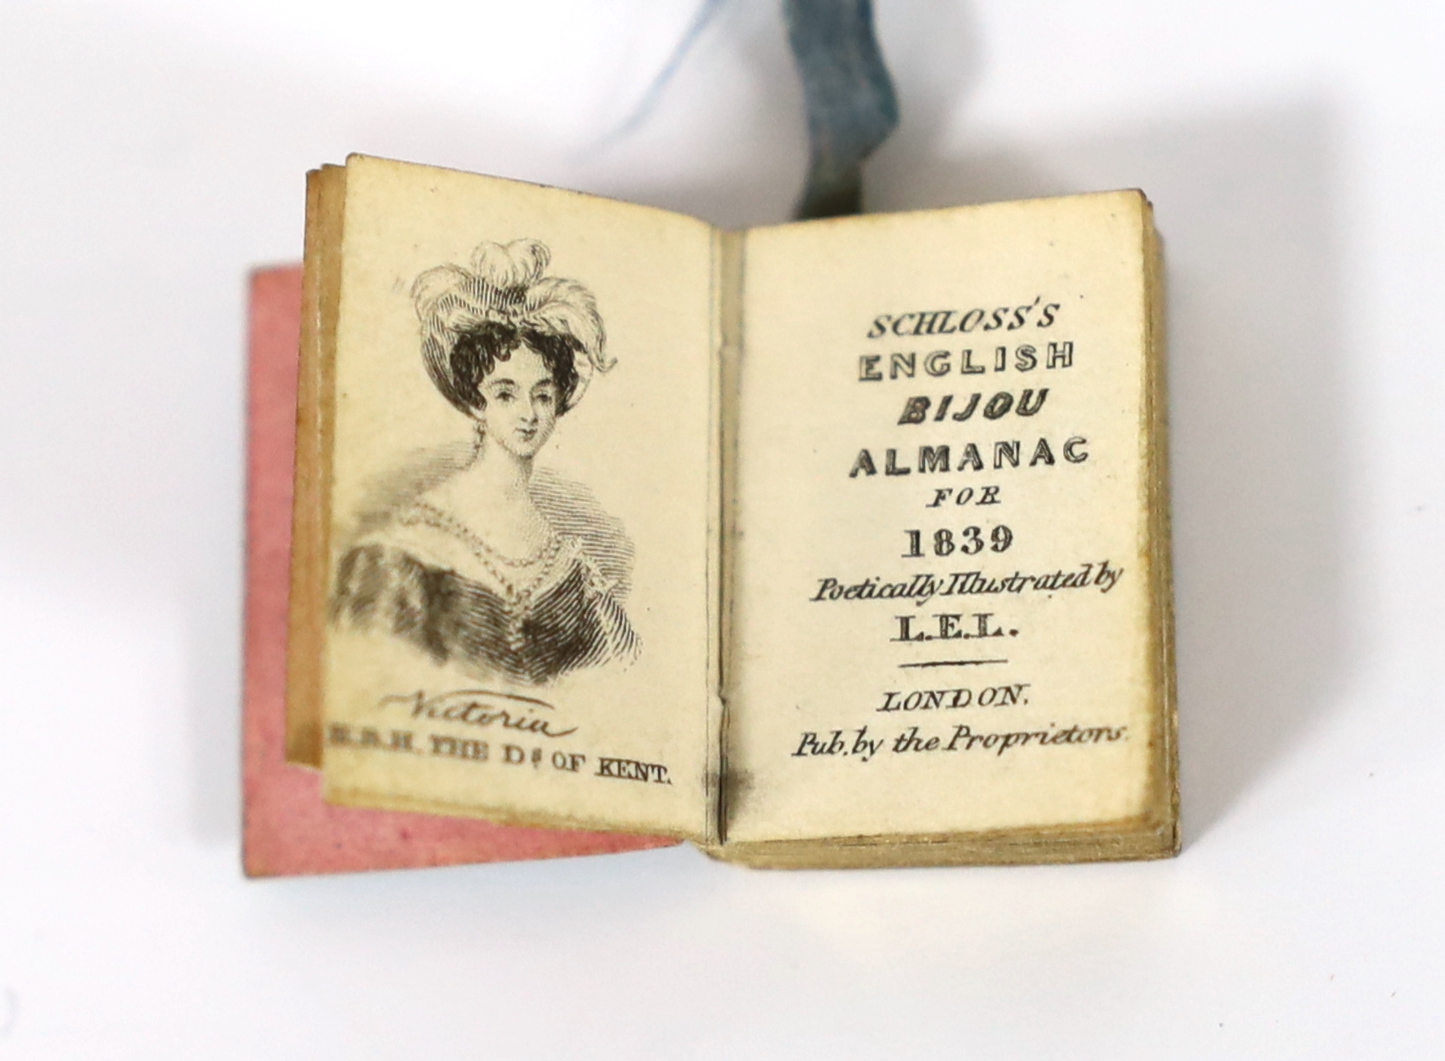 Victoria
H.R.H. THE Ds OF KENT.
SCHLOSS'S
ENGLISH
BIJOU
ALMANAC
FOR
1839
Poetically Illustrated by
L.E.L.
LONDON.
Pub. by the Proprietors.